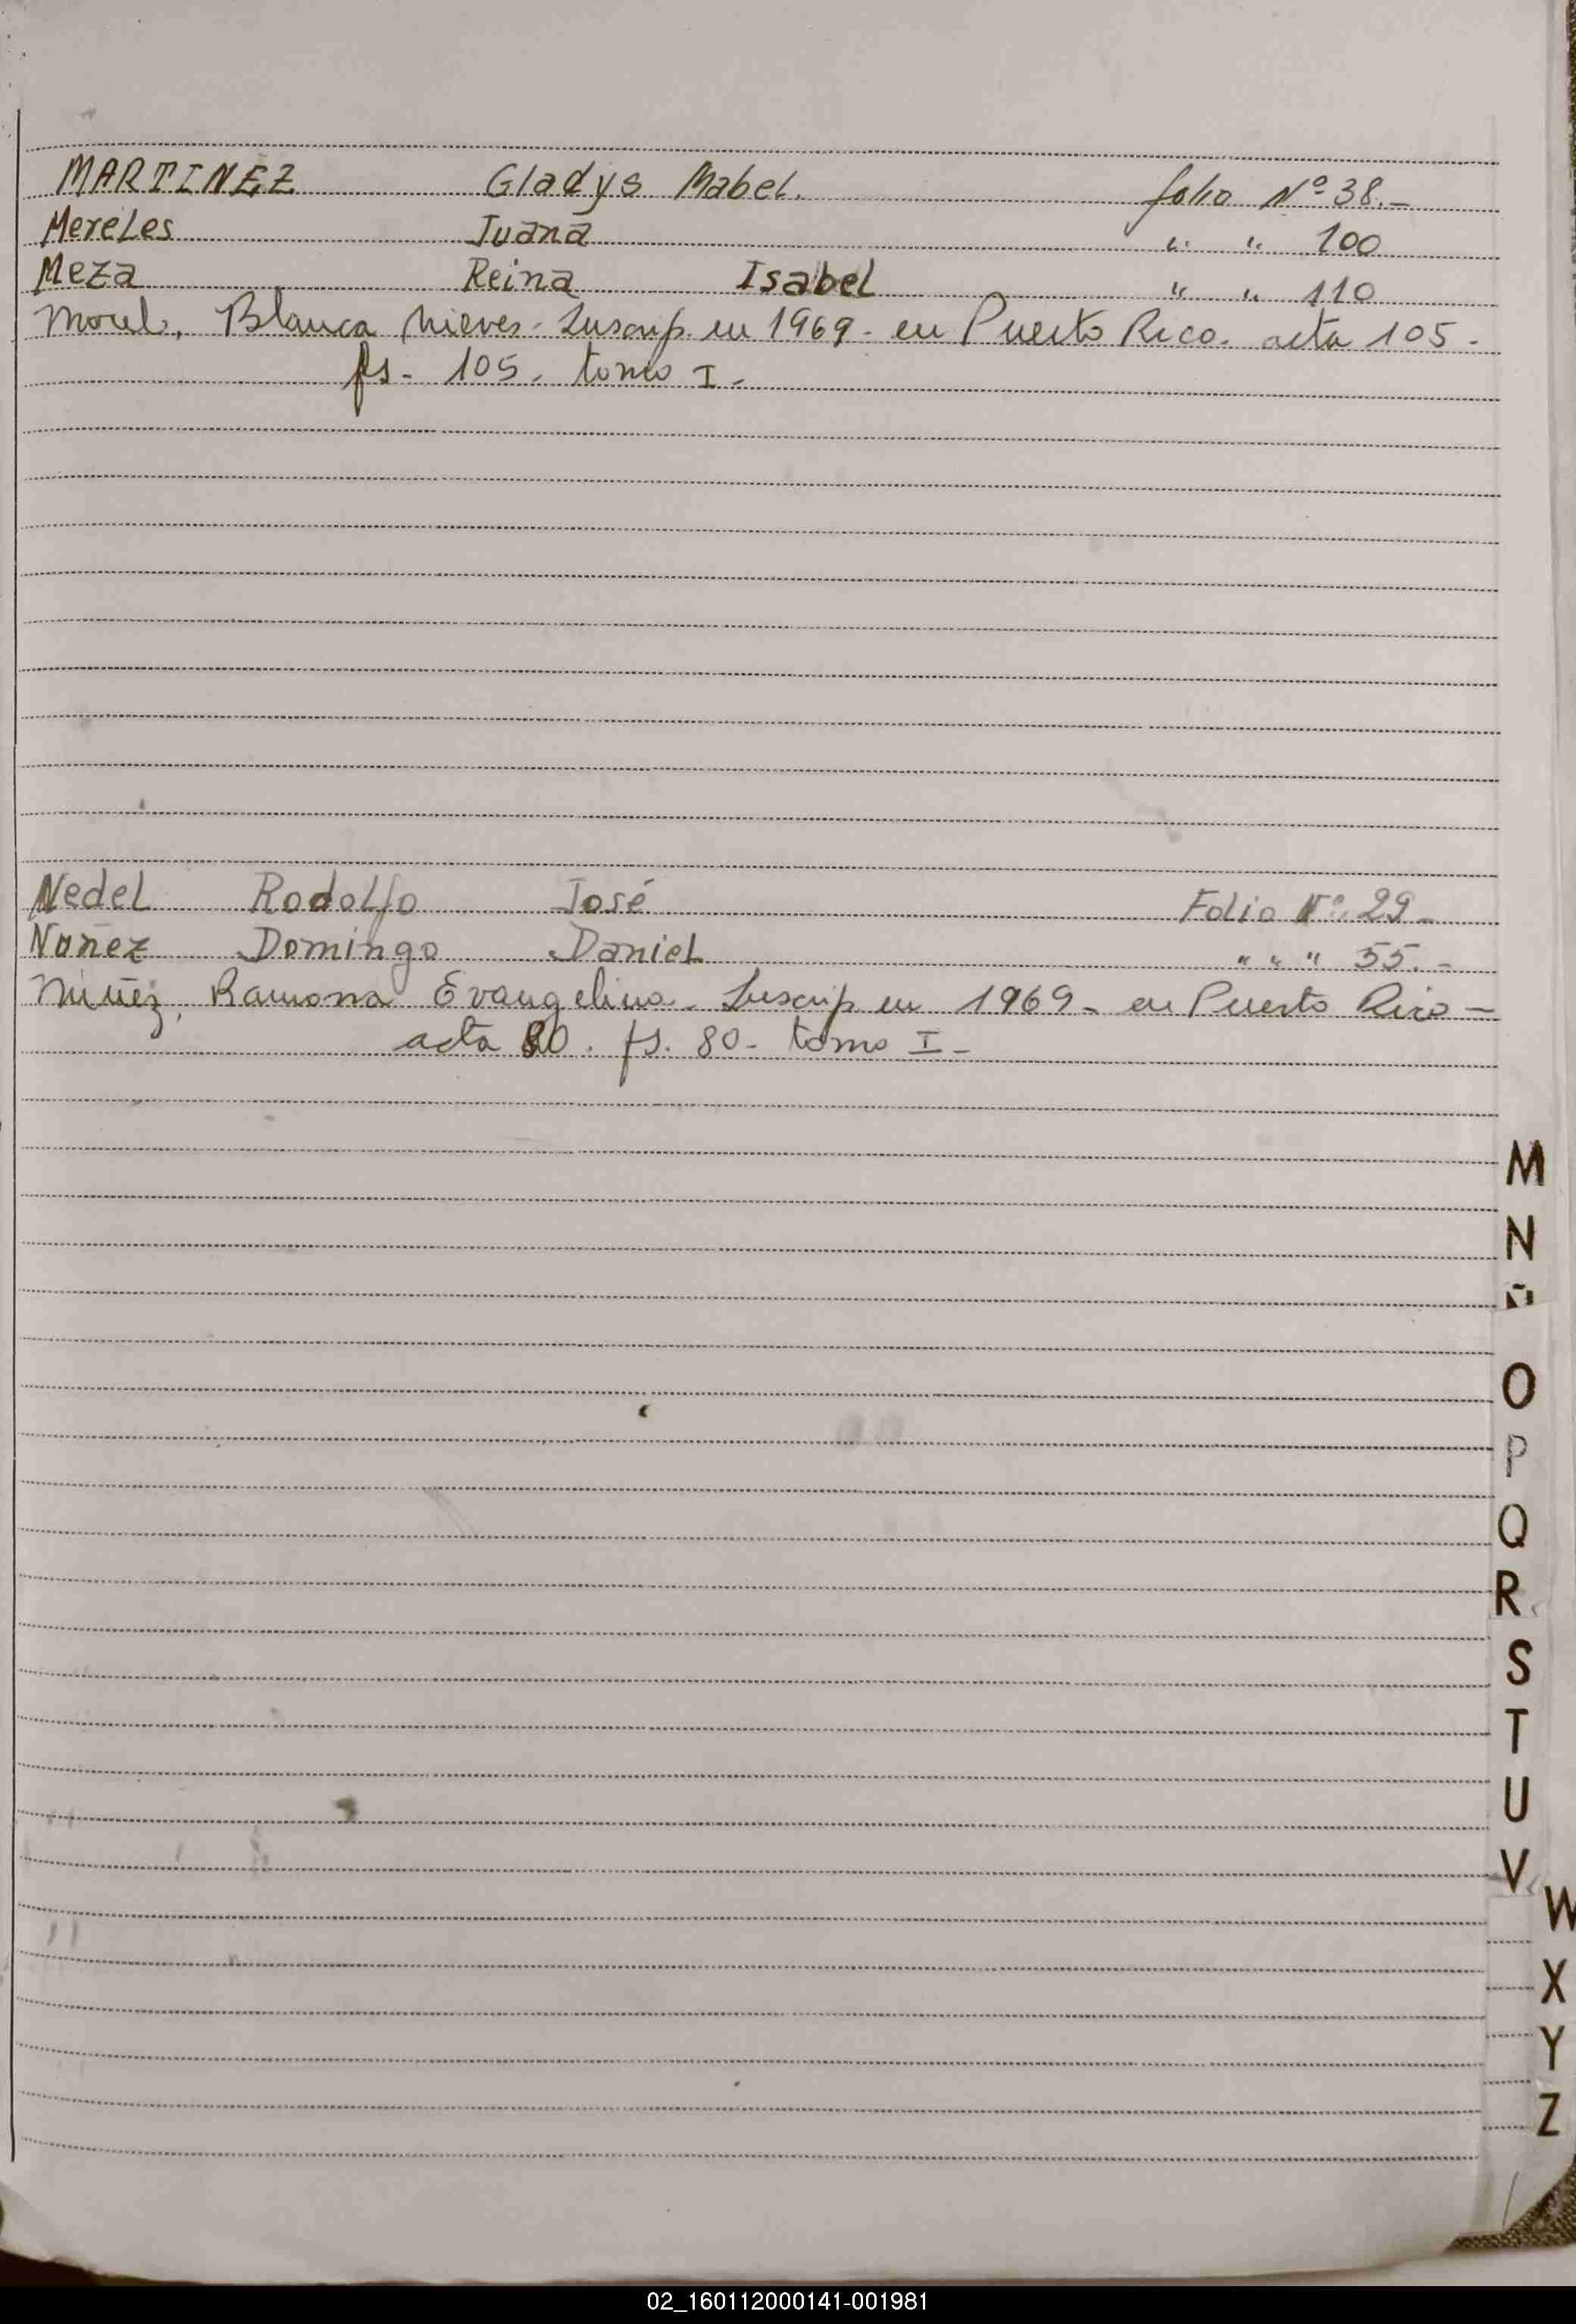 MARTINEZ Gladys Mabel. folio Nº 38.-
Mereles Juana " " 100
Meza Reina Isabel " " 110
Blanca Nieves - Inscrip. en 1969 - en Puerto Rico. acta 105 -
fs - 105 - tomo I -
Nedel Rodolfo José Folio Nº 29 -
Nuñez Domingo Daniel " " " 55. -
Ramona Evangelina - Inscrip en 1969 - en Puerto Rico -
acta 80. fs. 80 - tomo I -
M
N
Ñ
O
P
Q
R
S
T
U
V
W
X
Y
Z
02_160112000141-001981